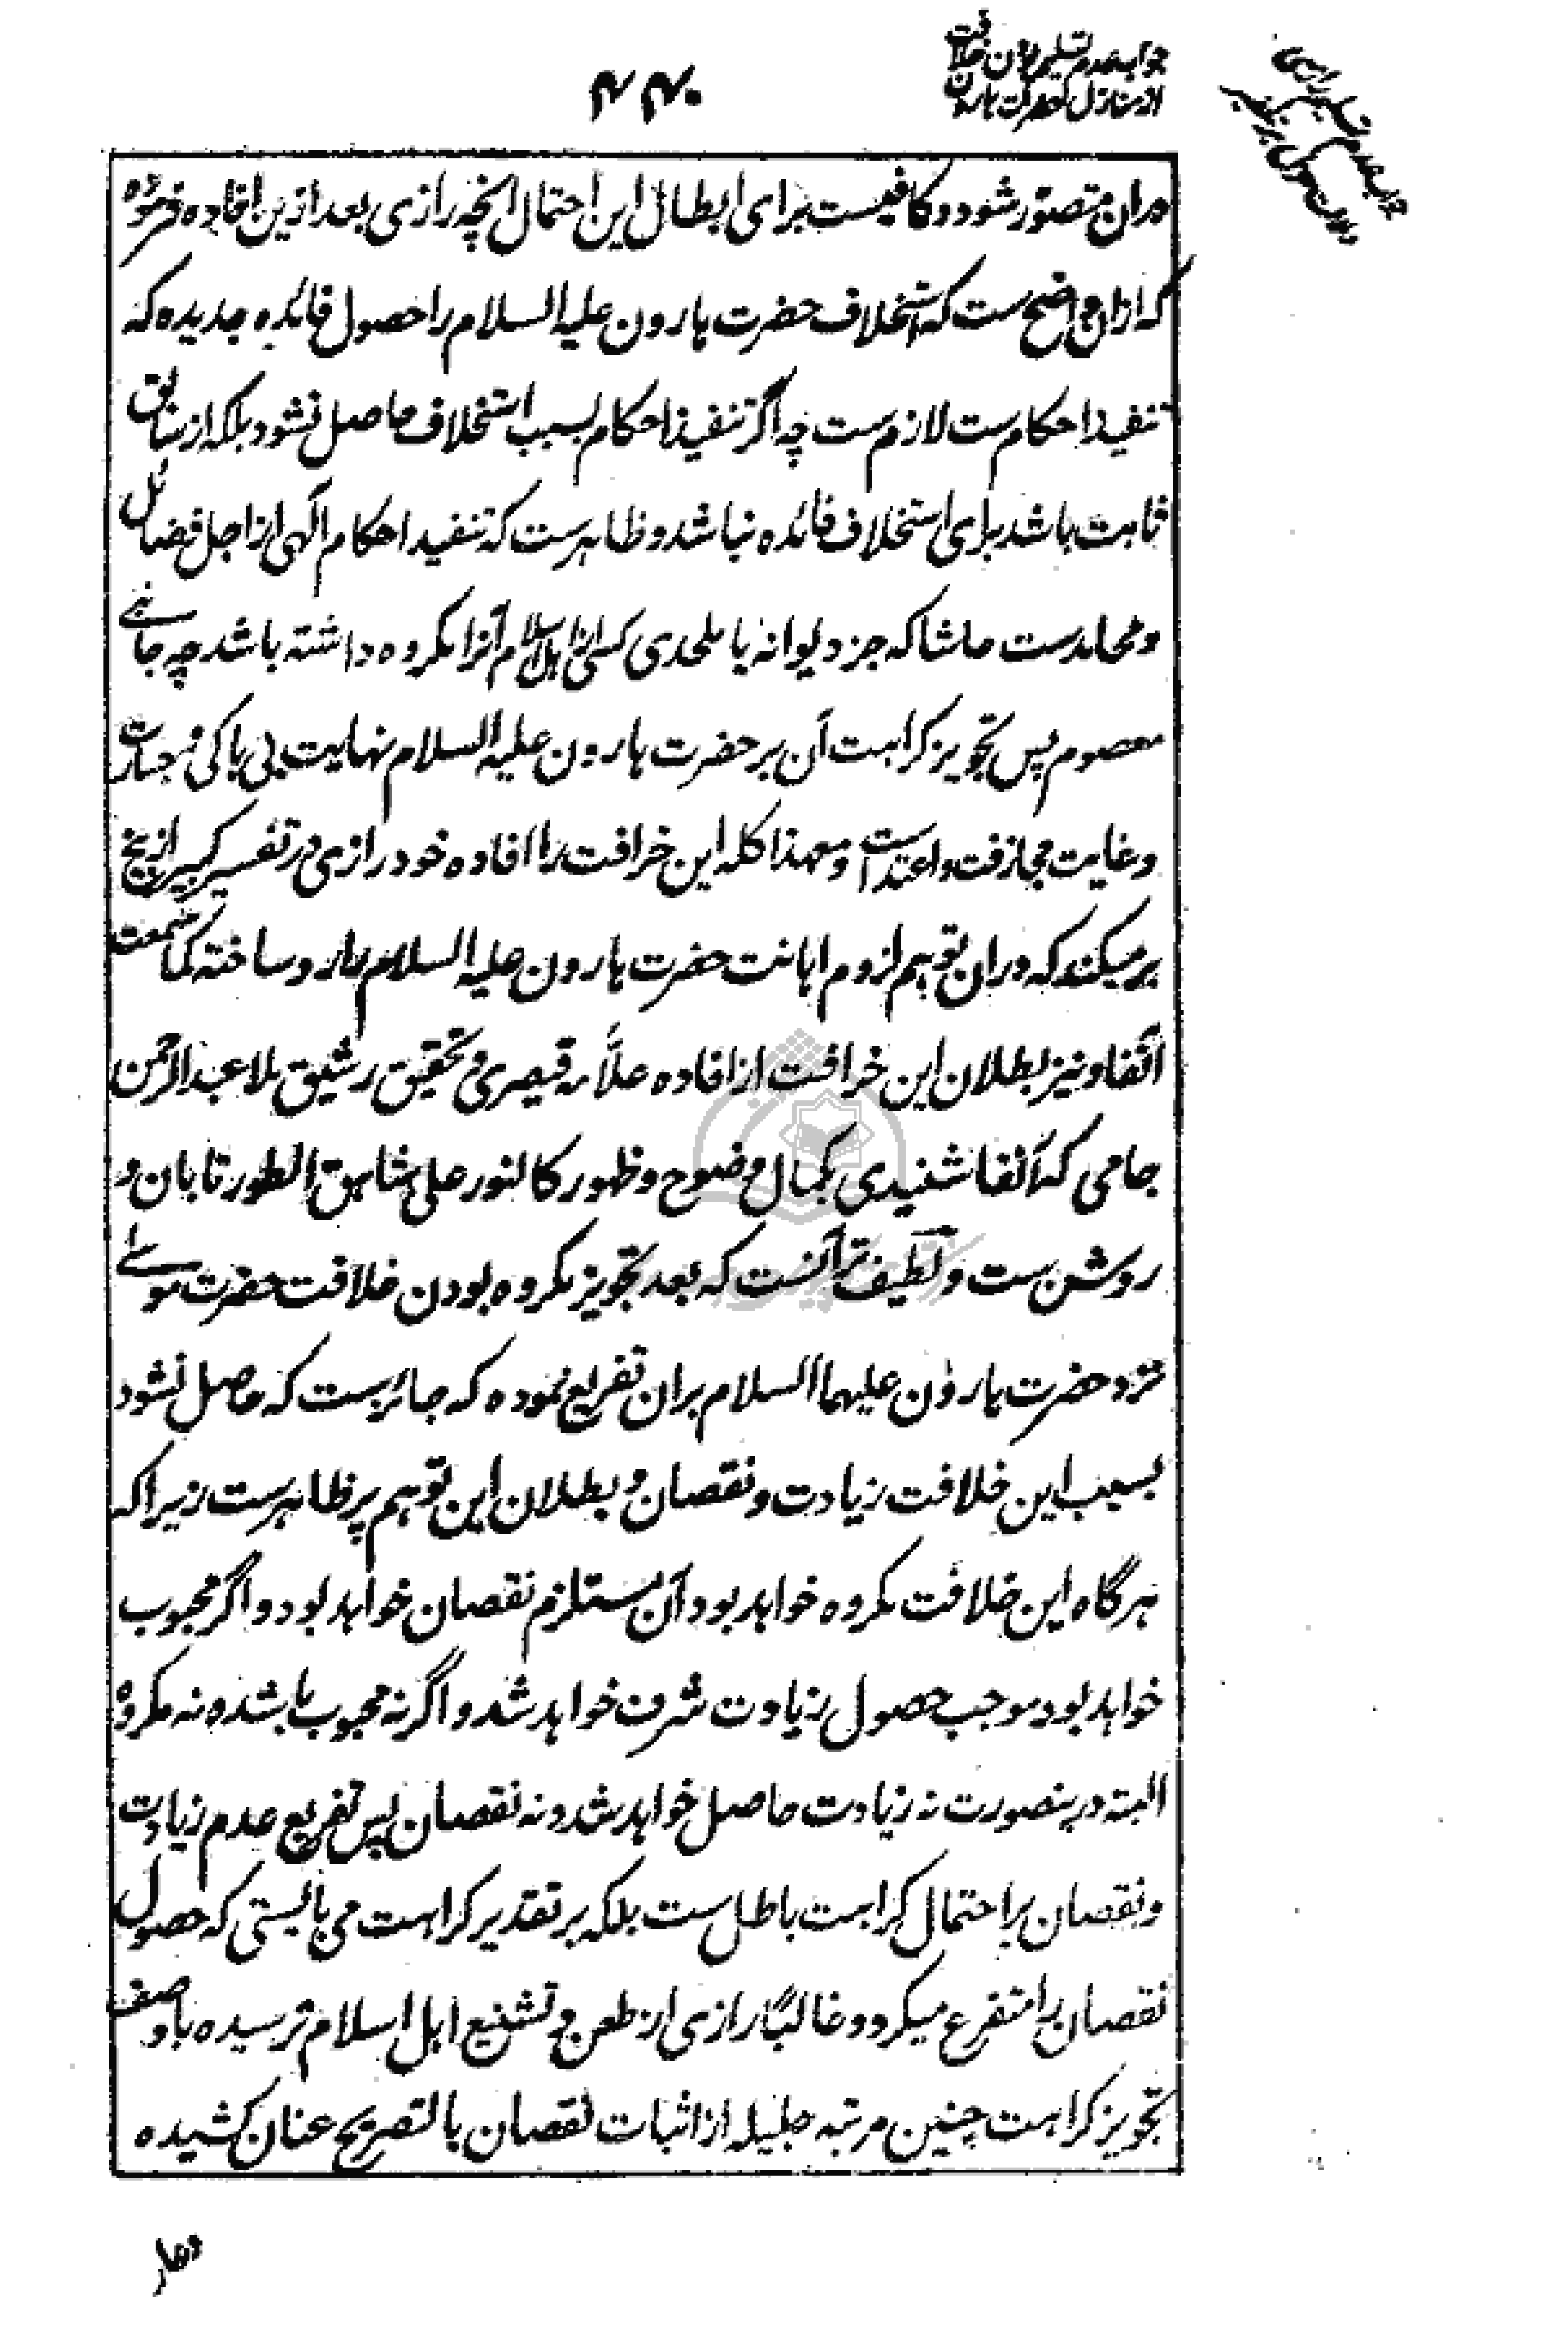 جواب عدم تسلیم بودن خلافت
از منازل حضرت هارون
۴۴۰
دران متصوّر شود و کافیست برای ابطال این احتمال انچه رازی بعد ازین افاده فرموده
که ازان واضح ست که استخلاف حضرت هارون علیه السلام را حصول فائده جدیده که
تنفیذ احکام ست لازم ست چه اگر تنفیذ احکام بسبب استخلاف حاصل نشود بلکه از سابق
ثابت باشد برای استخلاف فائده نباشد و ظاهرست که تنفیذ احکام آلهی از اجل فضائل
و محامدست حاشا که جز دیوانه یا ملحدی کسی از اهل اسلام آنرا مکروه داشته باشد چه جائے
معصوم پس تجویز کراهت آن بر حضرت هارون علیه السلام نهایت بی باکی و جسارت
و غایت مجازفت و اعتداست و معهذا کله این خرافت را افاده خود رازی در تفسیر کبیر از بیخ
بر میکند که دران توهم لزوم اهانت حضرت هارون علیه السلام را رد ساخته کما سمعت
آنفا و نیز بطلان این خرافت از افاده علّامه قیصری و تحقیق رشیق ملا عبدالرحمن
جامی که آنفا شنیدی بکمال وضوح و ظهور کالنور علی شاهق الطور تابان و
روشن ست و لطیف تر آنست که بعد تجویز مکروه بودن خلافت حضرت موسے
نزد حضرت هارون علیهما السلام بران تفریع نموده که جائزست که حاصل نشود
بسبب این خلافت زیادت و نقصان و بطلان این توهم پر ظاهرست زیرا که
هرگاه این خلافت مکروه خواهد بود آن مستلزم نقصان خواهد بود و اگر محبوب
خواهد بود موجب حصول زیادت شرف خواهد شد و اگر نه محبوب باشد و نه مکروه
البته درینصورت نه زیادت حاصل خواهد شد و نه نقصان پس تفریع عدم زیادت
و نقصان بر احتمال کراهت باطل ست بلکه بر تقدیر کراهت می بایستی که حصول
نقصان را متفرع میکرد و غالبًا رازی از طعن و تشنیع اهل اسلام ترسیده با وصف
تجویز کراهت چنین مرتبه جلیله از اثبات نقصان بالتصریح عنان کشیده